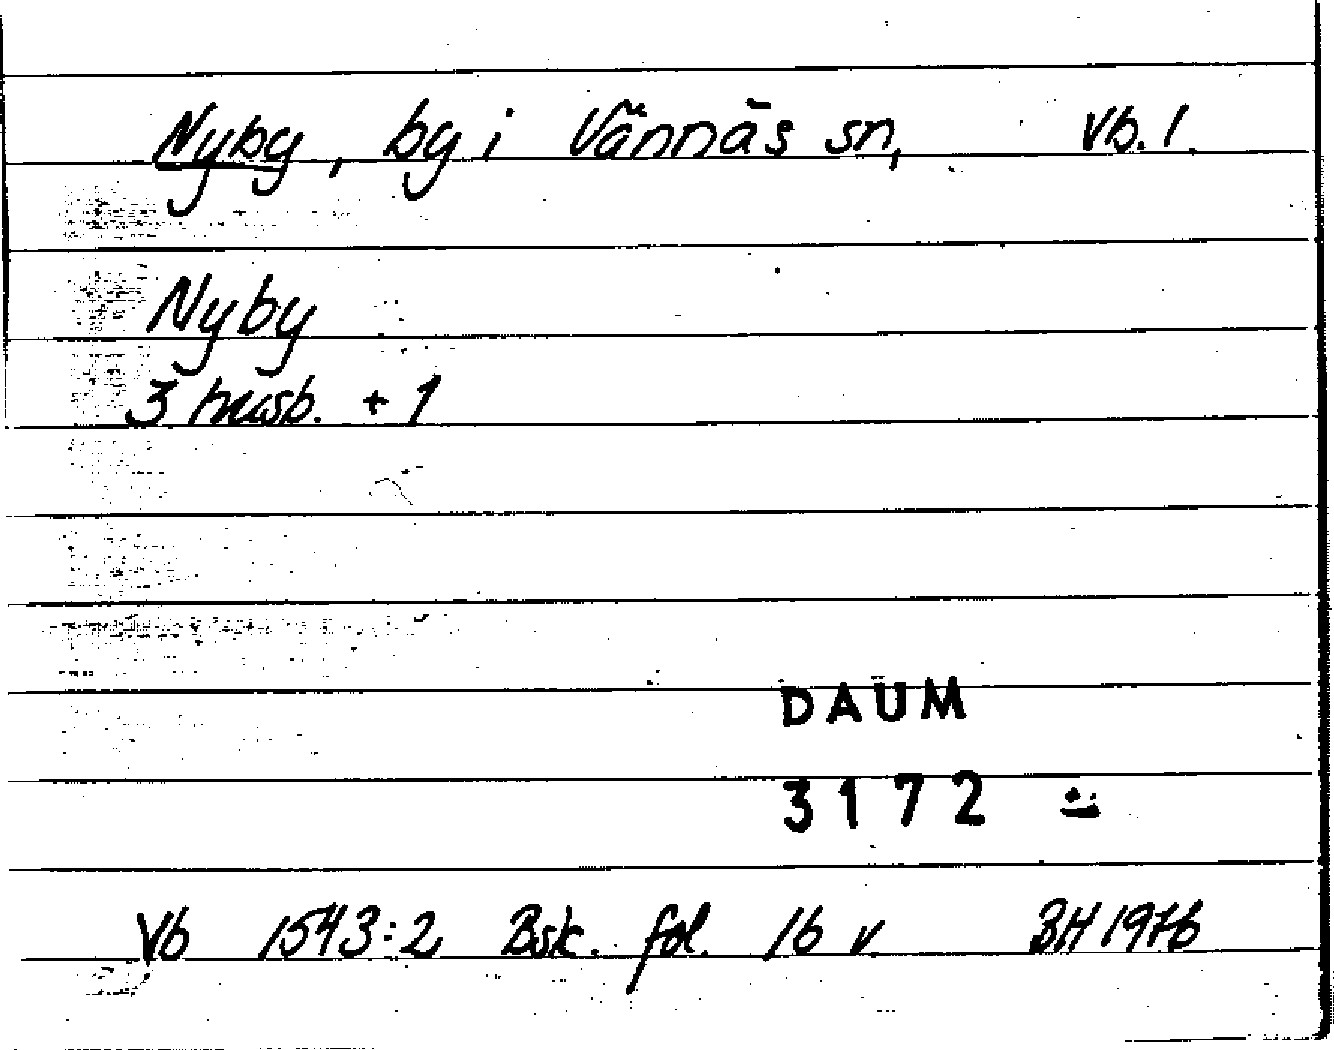 Nyby, by i Vännäs sn, Vb. l.
Nyby
3 husb. + 1
DAUM
3172
Vb 1543:2 Bsk. fol. 16 v BH 1976